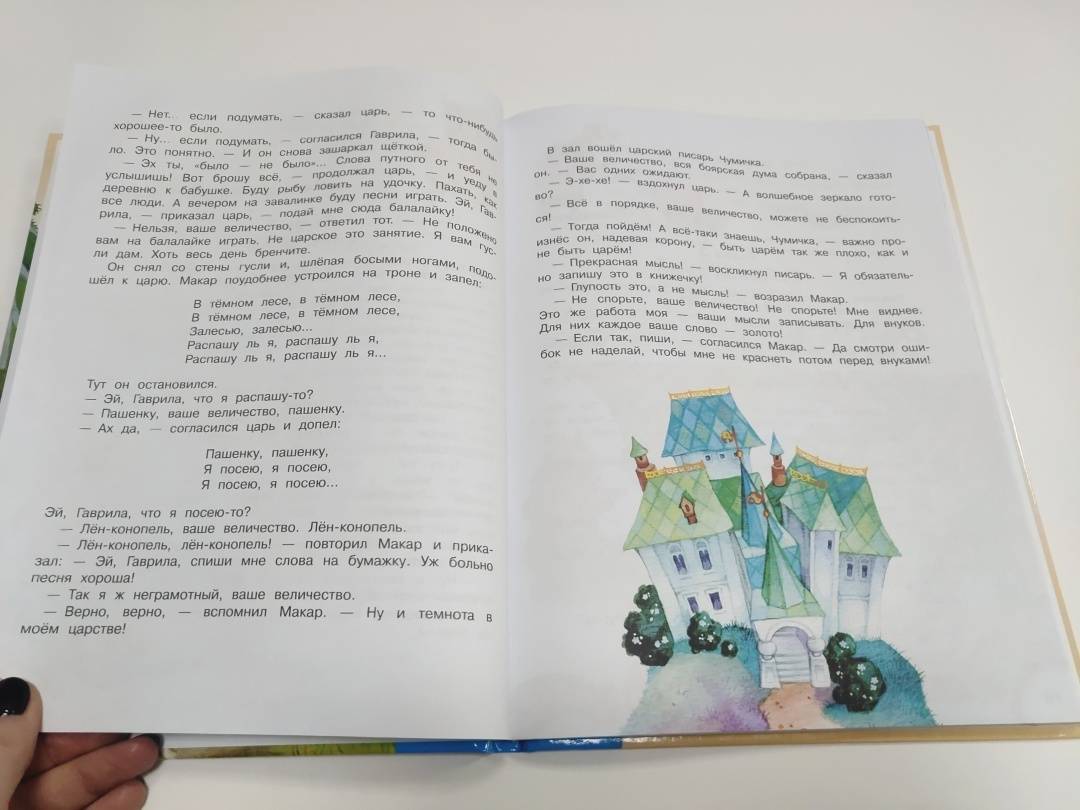 — Нет... если подумать, — сказал царь, — то что-нибудь
хорошее-то было.
— Ну... если подумать, — согласился Гаврила, — тогда бы-
ло. Это понятно. — И он снова зашаркал щёткой.
— Эх ты, «было — не было»... Слова путного от тебя не
услышишь! Вот брошу всё, — продолжал царь, — и уеду в
деревню к бабушке. Буду рыбу ловить на удочку. Пахать, как
все люди. А вечером на завалинке буду песни играть. Эй, Гав-
рила, — приказал царь, — подай мне сюда балалайку!
— Нельзя, ваше величество, — ответил тот. — Не положено
вам на балалайке играть. Не царское это занятие. Я вам гус-
ли дам. Хоть весь день бренчите.
Он снял со стены гусли и, шлёпая босыми ногами, подо-
шёл к царю. Макар поудобнее устроился на троне и запел:
В тёмном лесе, в тёмном лесе,
В тёмном лесе, в тёмном лесе,
Залесью, залесью...
Распашу ль я, распашу ль я,
Распашу ль я, распашу ль я...
Тут он остановился.
— Эй, Гаврила, что я распашу-то?
— Пашенку, ваше величество, пашенку.
— Ах да, — согласился царь и допел:
Пашенку, пашенку,
Я посею, я посею,
Я посею, я посею...
Эй, Гаврила, что я посею-то?
— Лён-конопель, ваше величество. Лён-конопель.
— Лён-конопель, лён-конопель! — повторил Макар и прика-
зал: — Эй, Гаврила, спиши мне слова на бумажку. Уж больно
песня хороша!
— Так я ж неграмотный, ваше величество.
— Верно, верно, — вспомнил Макар. — Ну и темнота в
моём царстве!
В зал вошёл царский писарь Чумичка.
— Ваше величество, вся боярская дума собрана, — сказал
он. — Вас одних ожидают.
— Э-хе-хе! — вздохнул царь. — А волшебное зеркало гото-
во?
— Всё в порядке, ваше величество, можете не беспокоить-
ся!
— Тогда пойдём! А всё-таки знаешь, Чумичка, — важно про-
изнёс он, надевая корону, — быть царём так же плохо, как и
не быть царём!
— Прекрасная мысль! — воскликнул писарь. — Я обязатель-
но запишу это в книжечку!
— Глупость это, а не мысль! — возразил Макар.
— Не спорьте, ваше величество! Не спорьте! Мне виднее.
Это же работа моя — ваши мысли записывать. Для внуков.
Для них каждое ваше слово — золото!
— Если так, пиши, — согласился Макар. — Да смотри оши-
бок не наделай, чтобы мне не краснеть потом перед внуками!